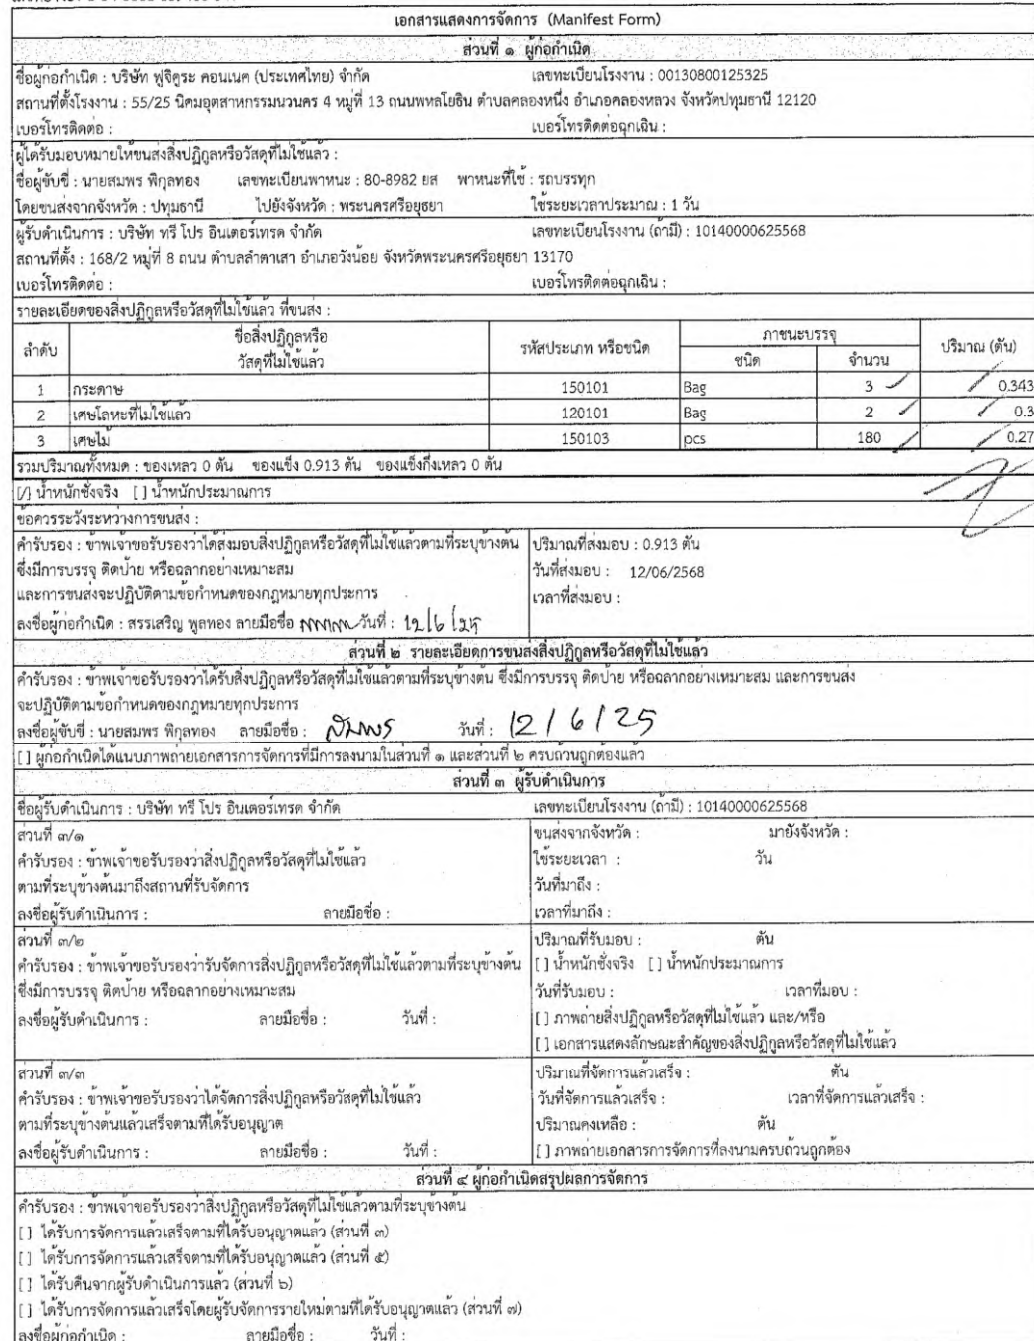 เอกสารแสดงการจัดการ (Manifest Form)
ส่วนที่ ๑ ผู้ก่อกำเนิด
ชื่อผู้ก่อกำเนิด : บริษัท ฟูจิคูระ คอนเนค (ประเทศไทย) จำกัด เลขทะเบียนโรงงาน : 00130800125325
สถานที่ตั้งโรงงาน : 55/25 นิคมอุตสาหกรรมนวนคร 4 หมู่ที่ 13 ถนนพหลโยธิน ตำบลคลองหนึ่ง อำเภอคลองหลวง จังหวัดปทุมธานี 12120
เบอร์โทรติดต่อ : เบอร์โทรติดต่อฉุกเฉิน :
ผู้ได้รับมอบหมายให้ขนส่งสิ่งปฏิกูลหรือวัสดุที่ไม่ใช้แล้ว :
ชื่อผู้ขับขี่ : นายสมพร พิกุลทอง เลขทะเบียนพาหนะ : 80-8982 ยส พาหนะที่ใช้ : รถบรรทุก
โดยขนส่งจากจังหวัด : ปทุมธานี ไปยังจังหวัด : พระนครศรีอยุธยา ใช้ระยะเวลาประมาณ : 1 วัน
ผู้รับดำเนินการ : บริษัท ทรี โปร อินเตอร์เทรด จำกัด เลขทะเบียนโรงงาน (ถ้ามี) : 10140000625568
สถานที่ตั้ง : 168/2 หมู่ที่ 8 ถนน ตำบลลำตาเสา อำเภอวังน้อย จังหวัดพระนครศรีอยุธยา 13170
เบอร์โทรติดต่อ : เบอร์โทรติดต่อฉุกเฉิน :
รายละเอียดของสิ่งปฏิกูลหรือวัสดุที่ไม่ใช้แล้ว ที่ขนส่ง :
ลำดับ ชื่อสิ่งปฏิกูลหรือ วัสดุที่ไม่ใช้แล้ว รหัสประเภท หรือชนิด ภาชนะบรรจุ ปริมาณ (ตัน)
ชนิด จำนวน
1 กระดาษ 150101 Bag 3 0.343
2 เศษโลหะที่ไม่ใช้แล้ว 120101 Bag 2 0.3
3 เศษไม้ 150103 pcs 180 0.27
รวมปริมาณทั้งหมด : ของเหลว 0 ตัน ของแข็ง 0.913 ตัน ของแข็งกึ่งเหลว 0 ตัน
[/] น้ำหนักชั่งจริง [ ] น้ำหนักประมาณการ
ข้อควรระวังระหว่างการขนส่ง :
คำรับรอง : ข้าพเจ้าขอรับรองว่าได้ส่งมอบสิ่งปฏิกูลหรือวัสดุที่ไม่ใช้แล้วตามที่ระบุข้างต้น ปริมาณที่ส่งมอบ : 0.913 ตัน
ซึ่งมีการบรรจุ ติดป้าย หรือฉลากอย่างเหมาะสม วันที่ส่งมอบ : 12/06/2568
และการขนส่งจะปฏิบัติตามข้อกำหนดของกฎหมายทุกประการ เวลาที่ส่งมอบ :
ลงชื่อผู้ก่อกำเนิด : สรรเสริญ พูลทอง ลายมือชื่อ วันที่ : 12/6/25
ส่วนที่ ๒ รายละเอียดการขนส่งสิ่งปฏิกูลหรือวัสดุที่ไม่ใช้แล้ว
คำรับรอง : ข้าพเจ้าขอรับรองว่าได้รับสิ่งปฏิกูลหรือวัสดุที่ไม่ใช้แล้วตามที่ระบุข้างต้น ซึ่งมีการบรรจุ ติดป้าย หรือฉลากอย่างเหมาะสม และการขนส่ง
จะปฏิบัติตามข้อกำหนดของกฎหมายทุกประการ
ลงชื่อผู้ขับขี่ : นายสมพร พิกุลทอง ลายมือชื่อ : สมพร วันที่ : 12/6/25
[ ] ผู้ก่อกำเนิดได้แนบภาพถ่ายเอกสารการจัดการที่มีการลงนามในส่วนที่ ๑ และส่วนที่ ๒ ครบถ้วนถูกต้องแล้ว
ส่วนที่ ๓ ผู้รับดำเนินการ
ชื่อผู้รับดำเนินการ : บริษัท ทรี โปร อินเตอร์เทรด จำกัด เลขทะเบียนโรงงาน (ถ้ามี) : 10140000625568
ส่วนที่ ๓/๑ ขนส่งจากจังหวัด : มายังจังหวัด :
คำรับรอง : ข้าพเจ้าขอรับรองว่าสิ่งปฏิกูลหรือวัสดุที่ไม่ใช้แล้ว ใช้ระยะเวลา : วัน
ตามที่ระบุข้างต้นมาถึงสถานที่รับจัดการ วันที่มาถึง :
ลงชื่อผู้รับดำเนินการ : ลายมือชื่อ : เวลาที่มาถึง :
ส่วนที่ ๓/๒ ปริมาณที่รับมอบ : ตัน
คำรับรอง : ข้าพเจ้าขอรับรองว่ารับจัดการสิ่งปฏิกูลหรือวัสดุที่ไม่ใช้แล้วตามที่ระบุข้างต้น [ ] น้ำหนักชั่งจริง [ ] น้ำหนักประมาณการ
ซึ่งมีการบรรจุ ติดป้าย หรือฉลากอย่างเหมาะสม วันที่รับมอบ : เวลาที่มอบ :
ลงชื่อผู้รับดำเนินการ : ลายมือชื่อ : วันที่ : [ ] ภาพถ่ายสิ่งปฏิกูลหรือวัสดุที่ไม่ใช้แล้ว และ/หรือ
[ ] เอกสารแสดงลักษณะสำคัญของสิ่งปฏิกูลหรือวัสดุที่ไม่ใช้แล้ว
ส่วนที่ ๓/๓ ปริมาณที่จัดการแล้วเสร็จ : ตัน
คำรับรอง : ข้าพเจ้าขอรับรองว่าได้จัดการสิ่งปฏิกูลหรือวัสดุที่ไม่ใช้แล้ว วันที่จัดการแล้วเสร็จ : เวลาที่จัดการแล้วเสร็จ :
ตามที่ระบุข้างต้นแล้วเสร็จตามที่ได้รับอนุญาต ปริมาณคงเหลือ : ตัน
ลงชื่อผู้รับดำเนินการ : ลายมือชื่อ : วันที่ : [ ] ภาพถ่ายเอกสารการจัดการที่ลงนามครบถ้วนถูกต้อง
ส่วนที่ ๔ ผู้ก่อกำเนิดสรุปผลการจัดการ
คำรับรอง : ข้าพเจ้าขอรับรองว่าสิ่งปฏิกูลหรือวัสดุที่ไม่ใช้แล้วตามที่ระบุข้างต้น
[ ] ได้รับการจัดการแล้วเสร็จตามที่ได้รับอนุญาตแล้ว (ส่วนที่ ๓)
[ ] ได้รับการจัดการแล้วเสร็จตามที่ได้รับอนุญาตแล้ว (ส่วนที่ ๕)
[ ] ได้รับคืนจากผู้รับดำเนินการแล้ว (ส่วนที่ ๖)
[ ] ได้รับการจัดการแล้วเสร็จโดยผู้รับจัดการรายใหม่ตามที่ได้รับอนุญาตแล้ว (ส่วนที่ ๗)
ลงชื่อผู้ก่อกำเนิด : ลายมือชื่อ : วันที่ :